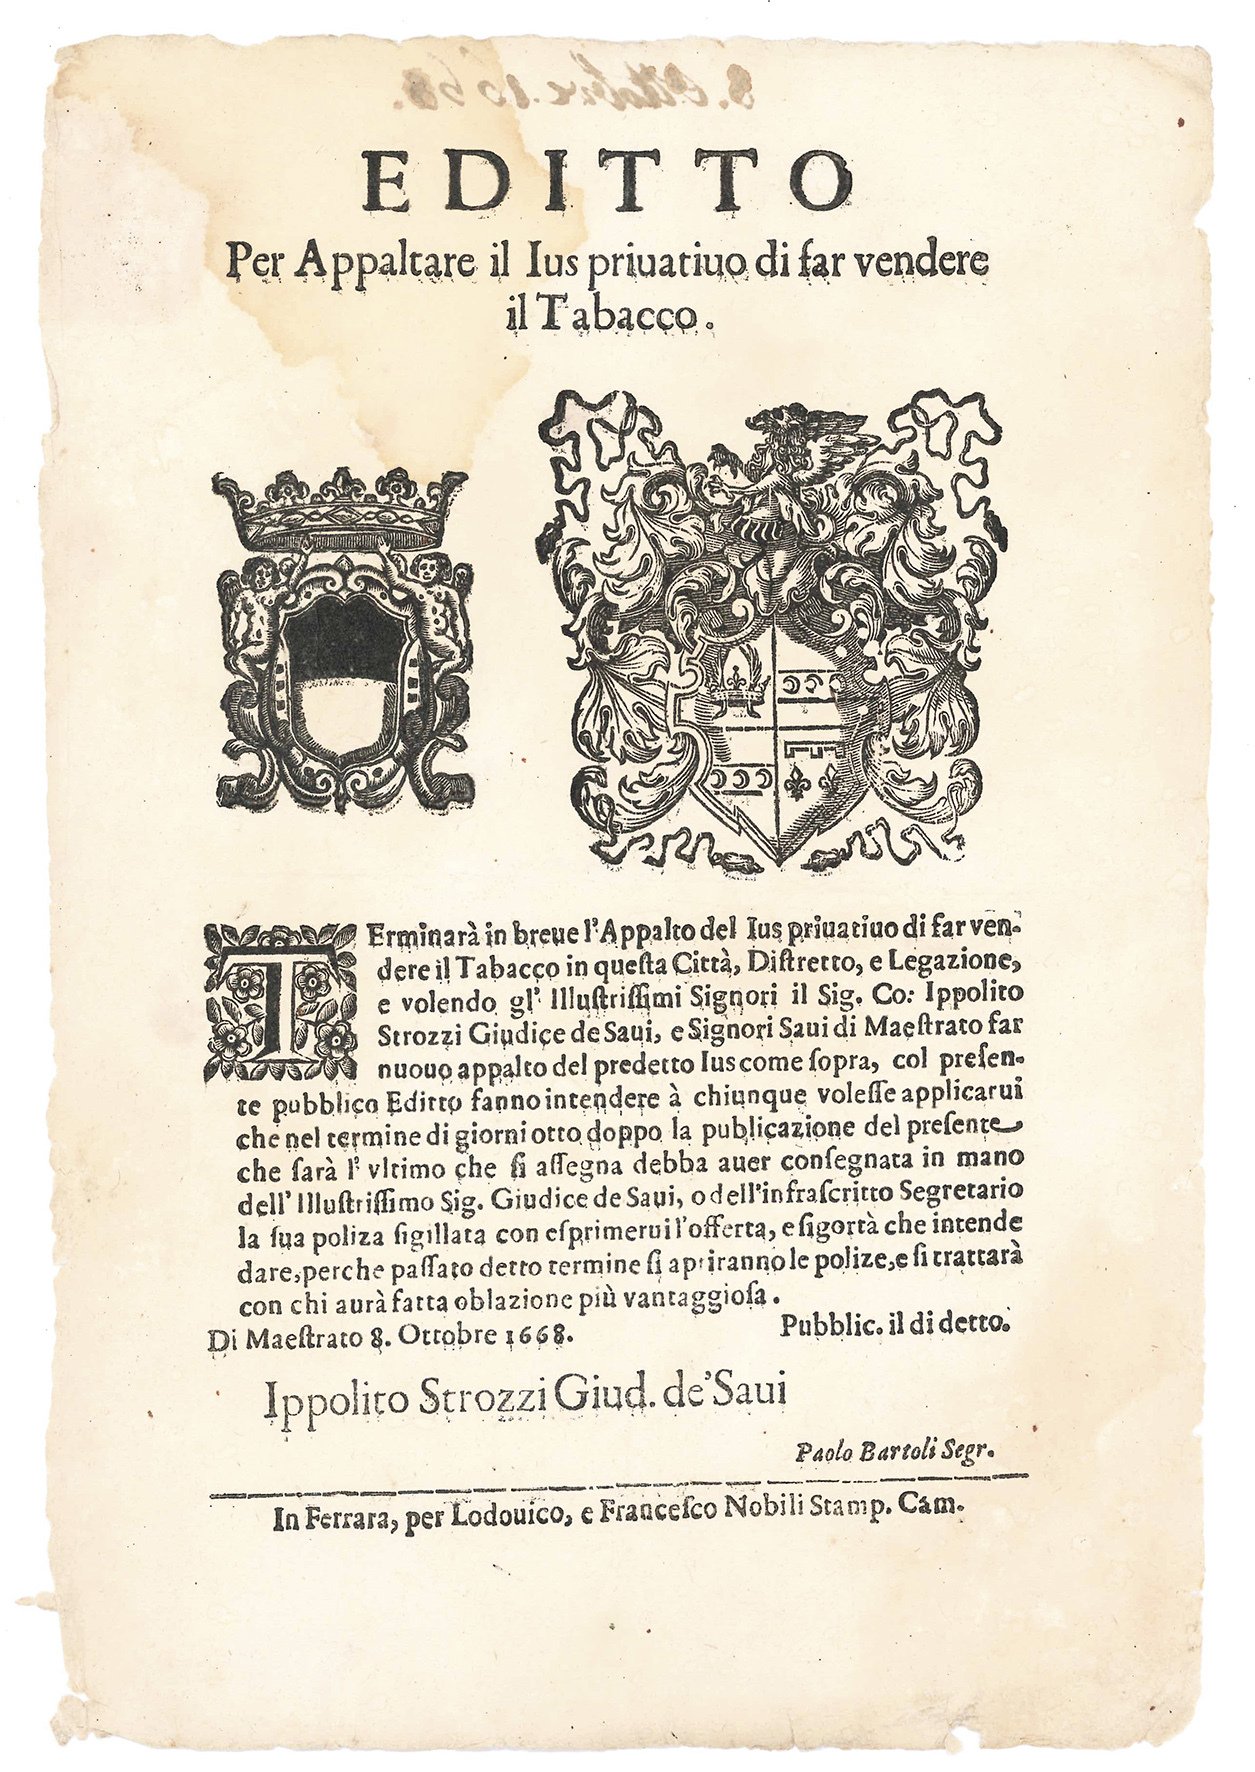 8. Ottobre 1668.
EDITTO
Per Appaltare il Ius priuatiuo di far vendere
il Tabacco.
TErminarà in breue l'Appalto del Ius priuatiuo di far ven-
dere il Tabacco in queſta Città, Diſtretto, e Legazione,
e volendo gl' Illuſtriſſimi Signori il Sig. Co: Ippolito
Strozzi Giudice de Saui, e Signori Saui di Maeſtrato far
nuouo appalto del predetto Ius come ſopra, col preſen-
te pubblico Editto fanno intendere à chiunque voleſſe applicarui
che nel termine di giorni otto doppo la publicazione del preſente
che ſarà l' vltimo che ſi aſſegna debba auer conſegnata in mano
dell' Illuſtriſſimo Sig. Giudice de Saui, o dell'infraſcritto Segretario
la ſua poliza ſigillata con eſprimerui l'offerta, e ſigortà che intende
dare, perche paſſato detto termine ſi apriranno le polize, e ſi trattarà
con chi aurà fatta oblazione più vantaggioſa.
Di Maeſtrato 8. Ottobre 1668. Pubblic. il di detto.
Ippolito Strozzi Giud. de' Saui
Paolo Bartoli Segr.
In Ferrara, per Lodouico, e Franceſco Nobili Stamp. Cam.